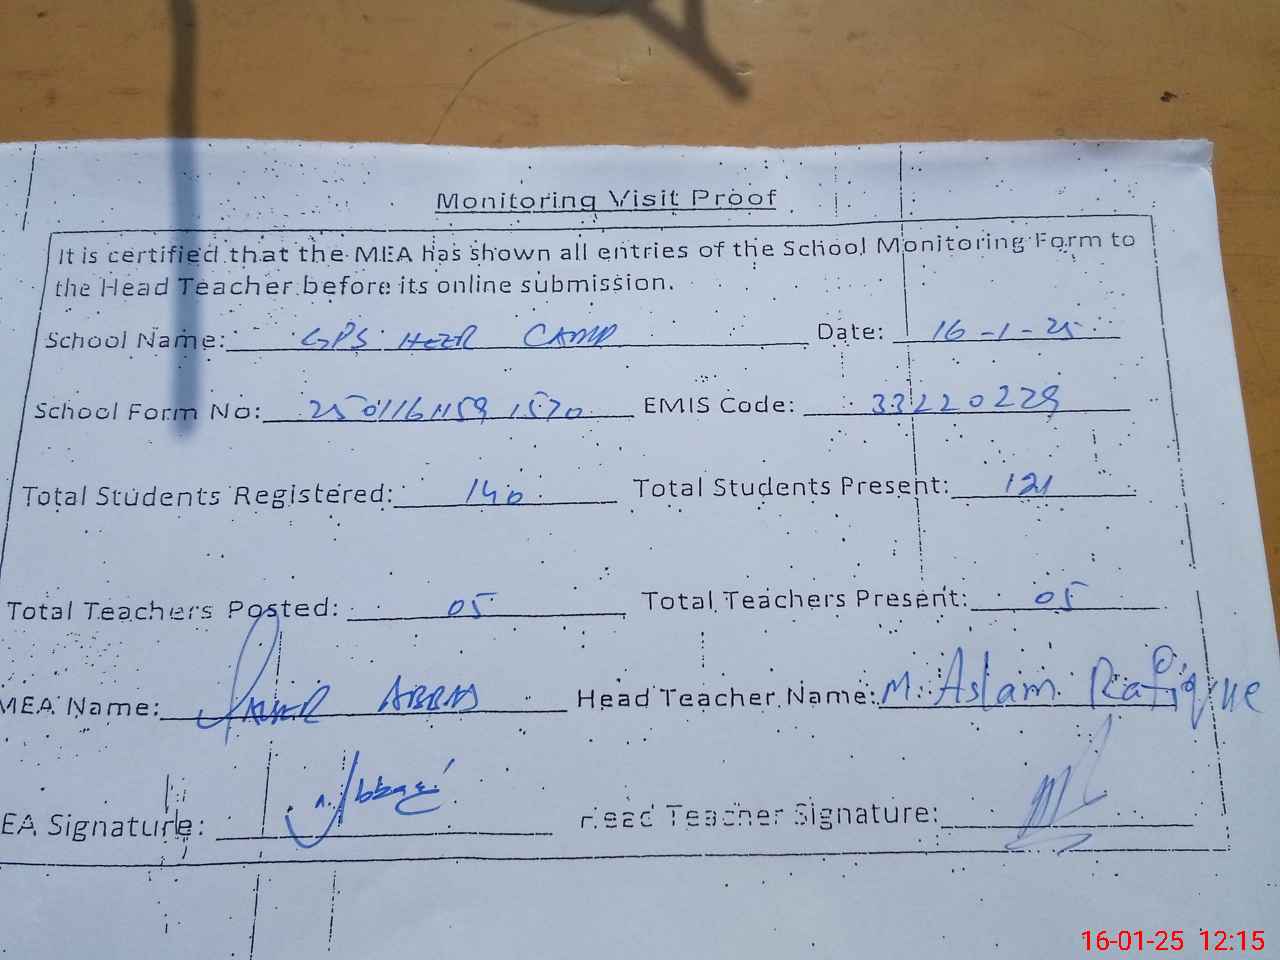 Monitoring Visit Proof
It is certified that the MEA has shown all entries of the School Monitoring Form to
the Head Teacher before its online submission.
School Name: GPS HEER CAMP Date: 16-1-25
School Form No: 2501161159 1570 EMIS Code: 33220229
Total Students Registered: 140 Total Students Present: 121
Total Teachers Posted: 05 Total Teachers Present: 05
MEA Name: ABBAS Head Teacher Name: M. Aslam Rafique
EA Signature: Head Teacher Signature:
16-01-25 12:15